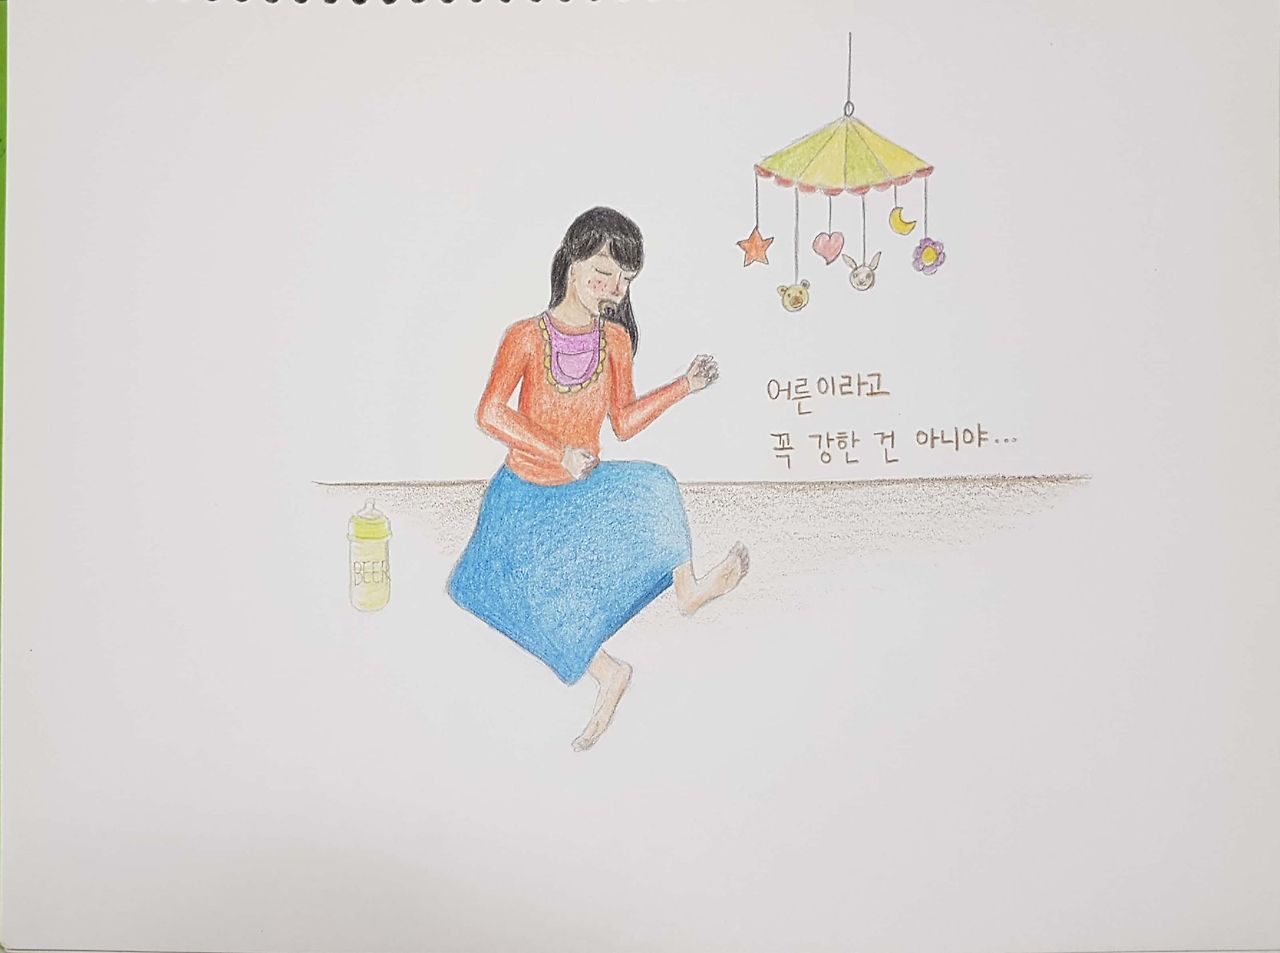 어른이라고
꼭 강한 건 아니야...
BEER